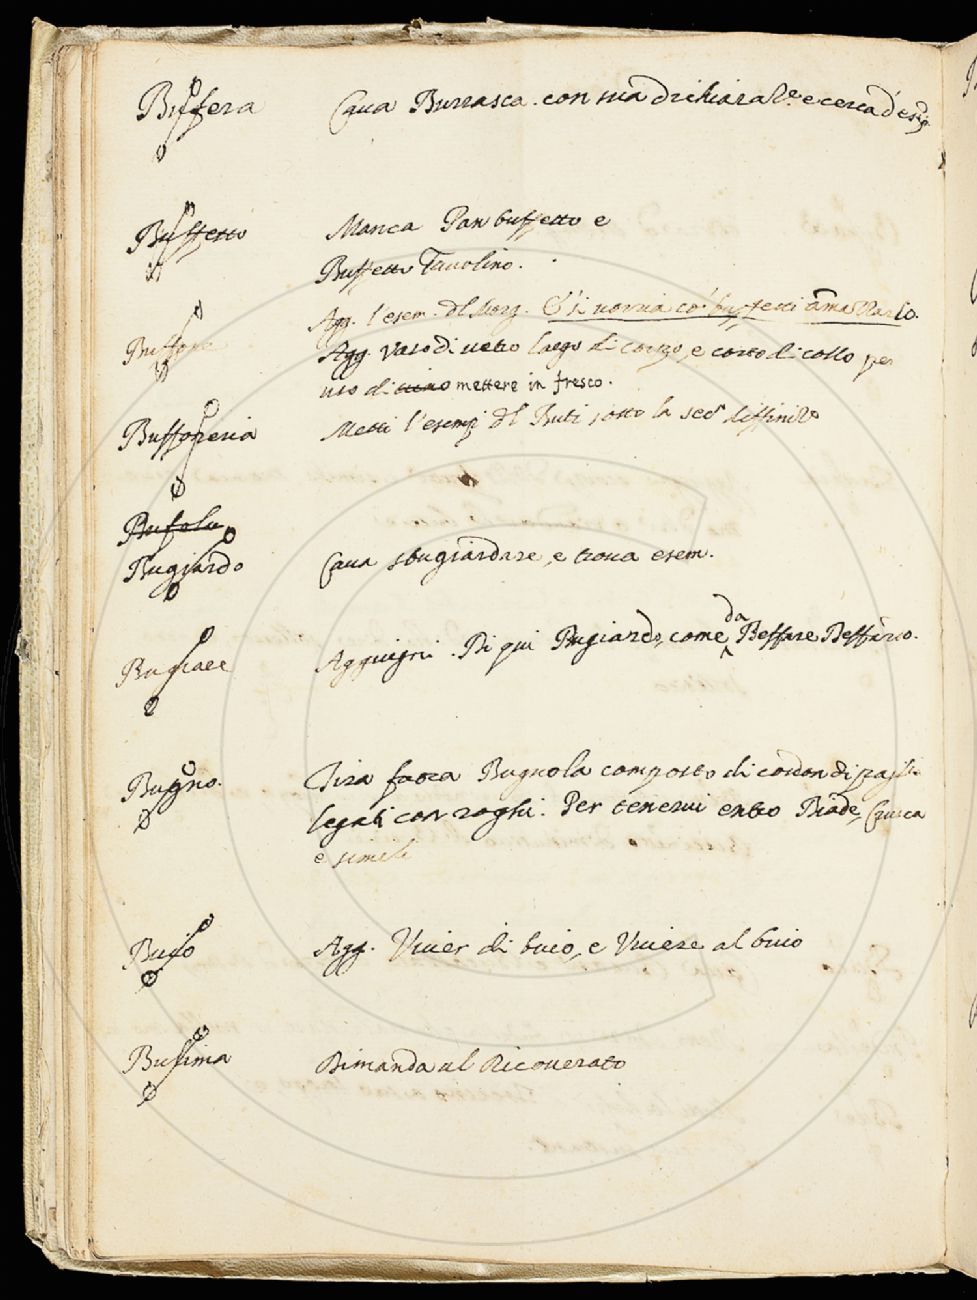 Buffera Cava Burrasca. con sua dichiaraz.e e cerca d'esig
Buffetto Manca Pan buffetto e
Buffetto Tavolino.
Agg. l'esem. del Morg. E si vorria co' buffetti amazzarlo.
Buffone Agg. vaso di vetro largo di corpo, e corto di collo per
uso di mettere in fresco.
Buffoneria Metti l'esemp del Buti sotto la sec.a diffiniz.
Bufola
Bugiardo Cava sbugiardare, e trova esem.
da
Bugiare Aggiugni. Di qui Bugiardo, come Beffare Beffardo.
Bugno. Tira fuora Bugnola composto di cordon di paglia
legati con roghi. Per tenervi entro Biade, Crusca
e simili
Buio Agg. Vivier di buio, e Vivere al buio
Busima Dimanda al Ricoverato